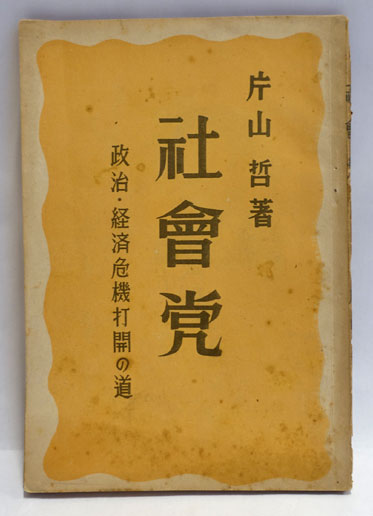 片山哲著
社會党
政治・経済危機打開の道